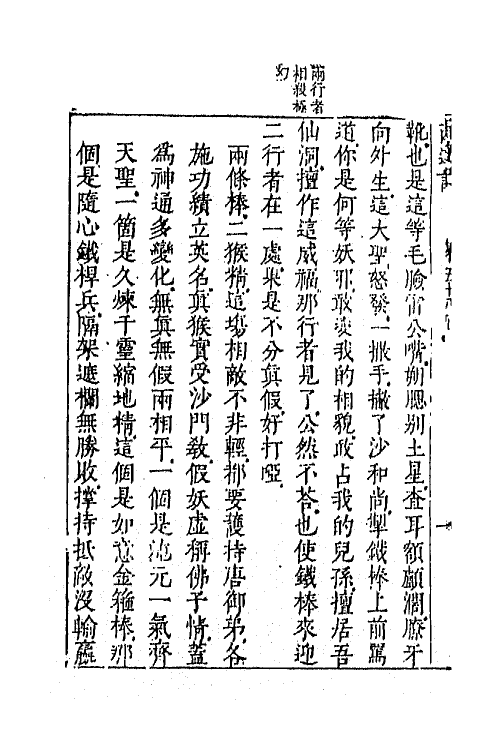 兩行者
相殺極
幻
靴也是這等毛臉雷公嘴朔腮别土星查耳額顱濶獠牙
向外生這大聖怒發一撒手撇了沙和尚掣鐵棒上前罵
道你是何等妖邪敢變我的相貌敢占我的兒孫擅居吾
仙洞擅作這威福那行者見了公然不荅也使鐵棒來迎
二行者在一處果是不分真假好打啞
兩條棒二猴精這塲相敵不非輕都要護持唐御弟各
施功績立英名真猴實受沙門教假妖虚稱佛子情蓋
爲神通多變化無真無假兩相平一個是混元一氣齊
天聖一箇是久煉千靈縮地精這個是如意金箍棒那
個是隨心鐵桿兵隔架遮攔無勝敗撑持抵敵没輸贏